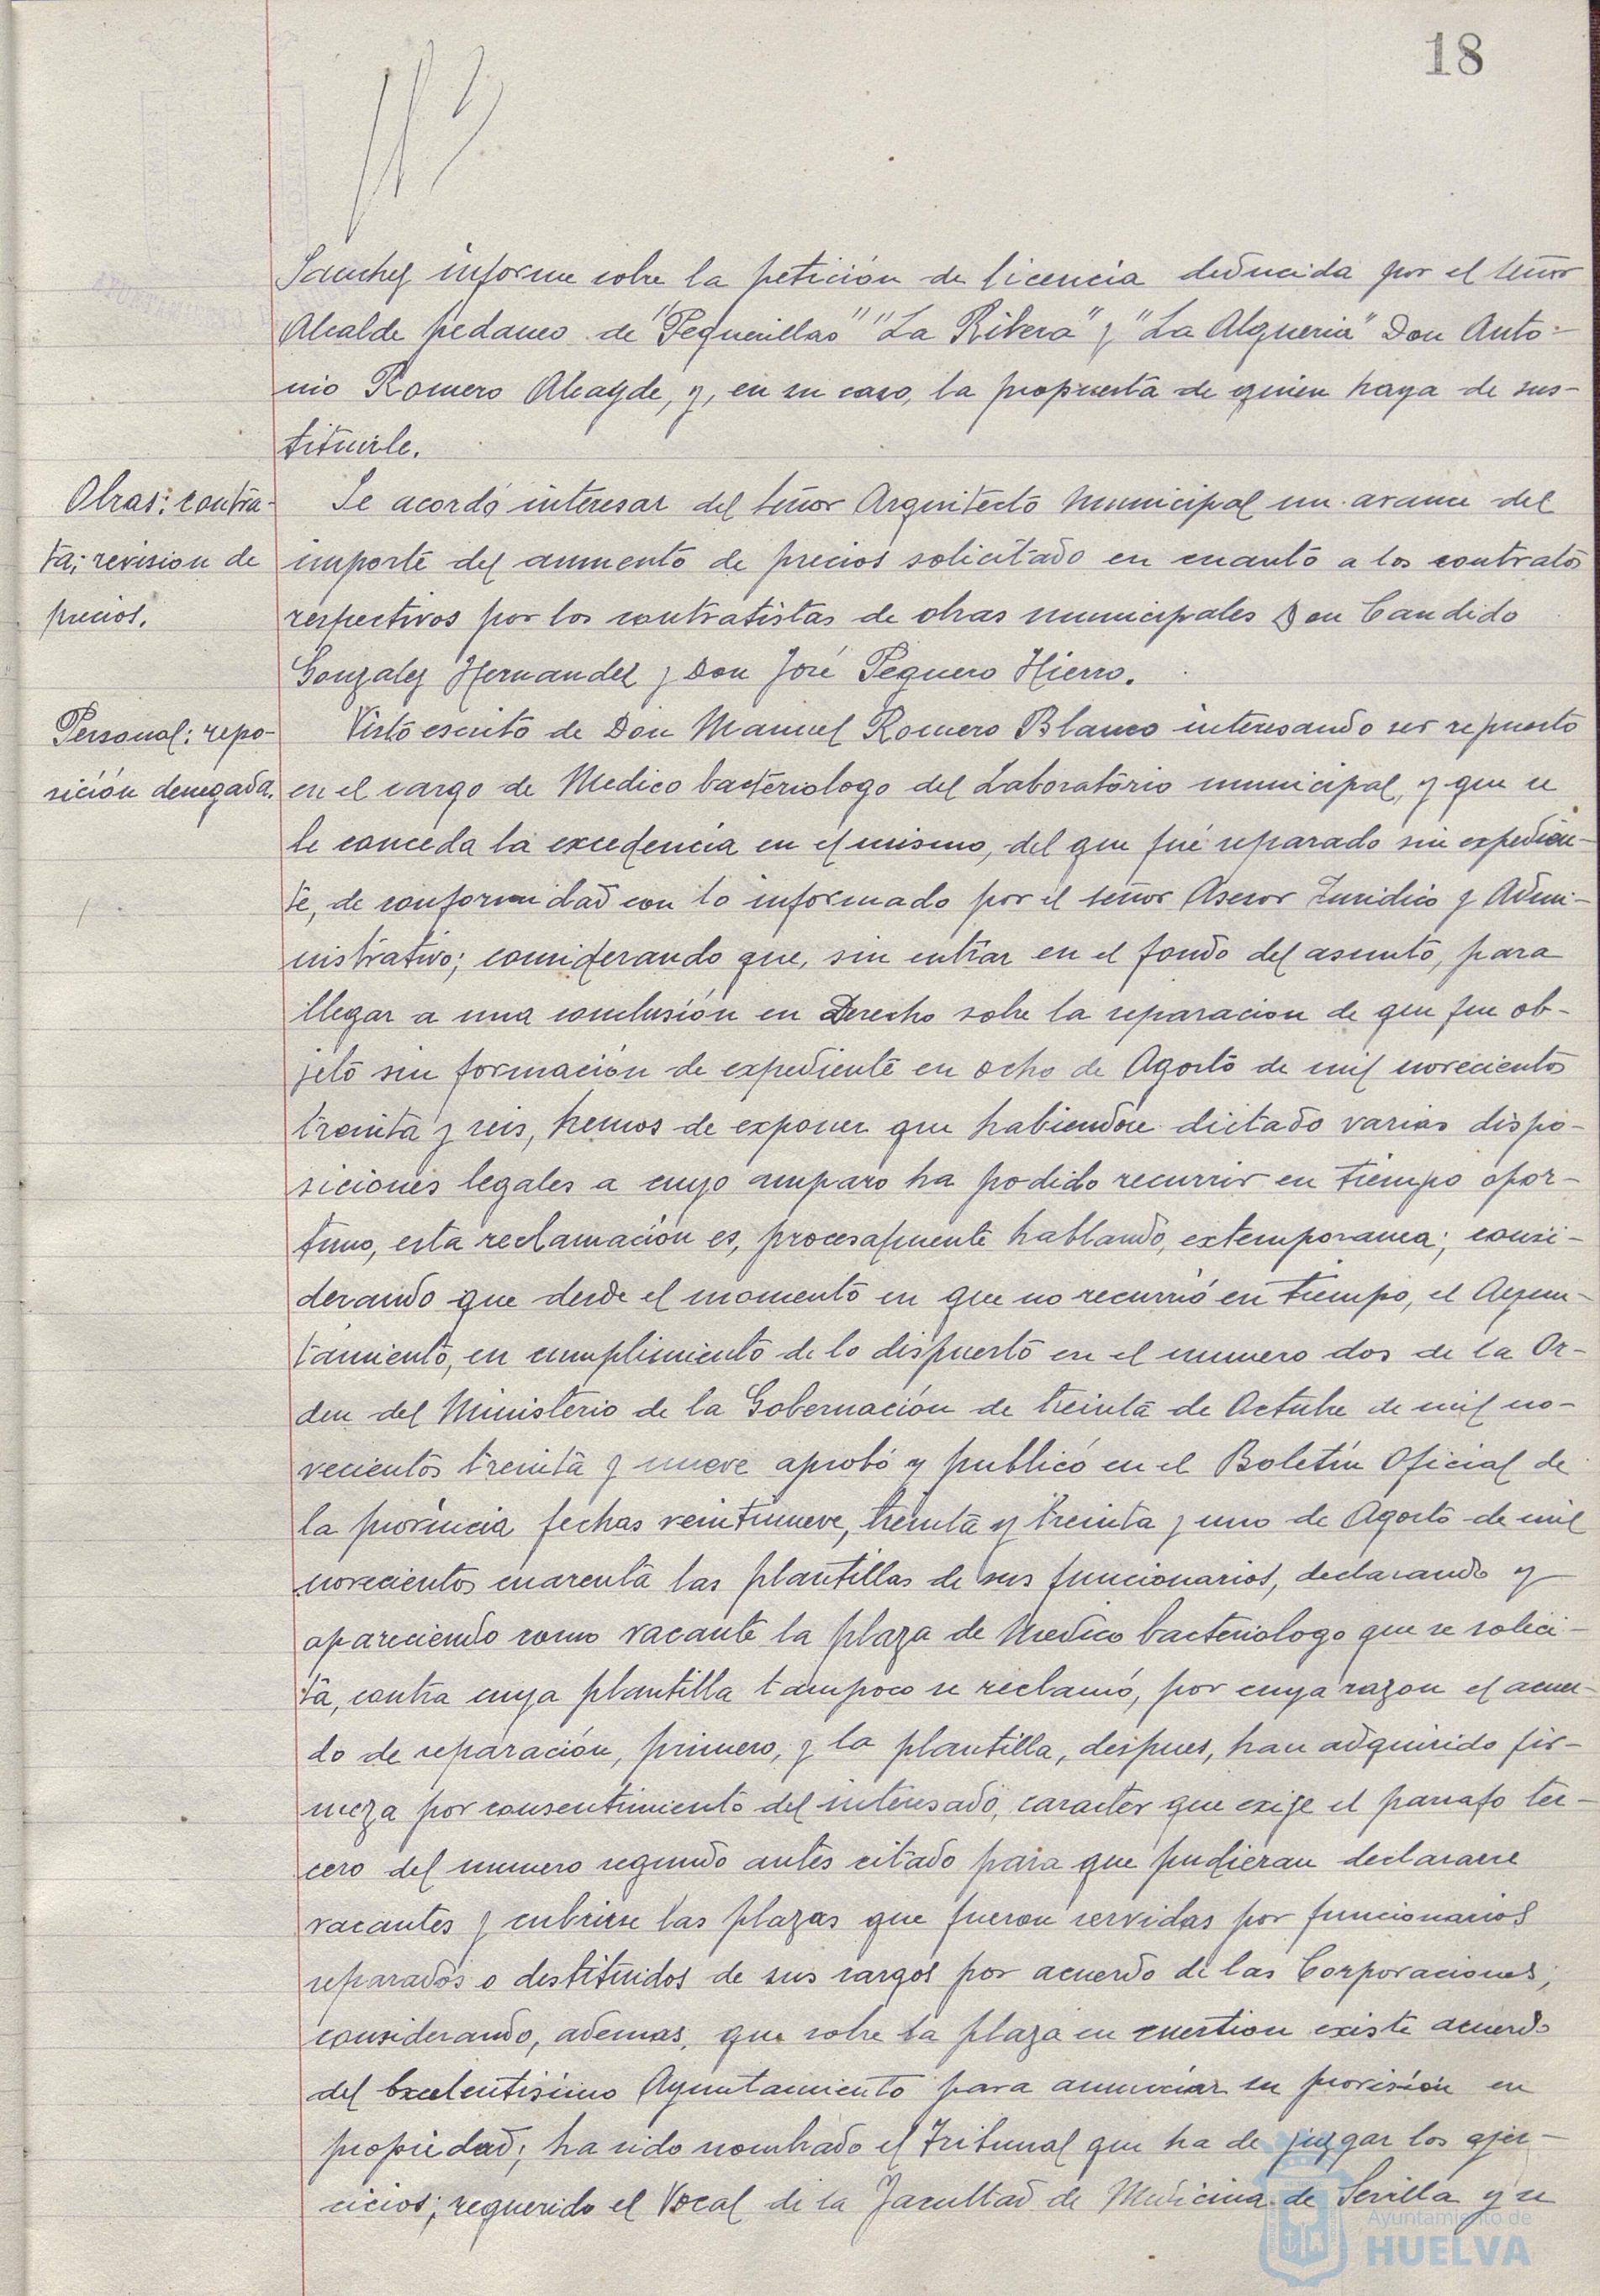 18
Sanchez informe sobre la petición de licencia deducida por el señor
Alcalde pedaneo de "Peguerillas" "La Ribera" y "La Alqueria" Don Anto-
nio Romero Alcayde, y, en su caso, la propuesta de quien haya de sus-
tituirle.
Obras: contra-
ta; revision de
precios.
Se acordó interesar del señor Arquitecto Municipal un avance del
importe del aumento de precios solicitado en cuanto a los contratos
respectivos por los contratistas de obras municipales Don Candido
Gonzalez Hernandez y Don José Peguero Hierro.
Personal: repo-
sición denegada.
Visto escrito de Don Manuel Romero Blanco interesando ser repuesto
en el cargo de Medico bacteriologo del Laboratorio municipal, y que se
le conceda la excedencia en el mismo, del que fué separado sin expedien-
te, de conformidad con lo informado por el señor Asesor Juridico y Admi-
nistrativo; considerando que, sin entrar en el fondo del asunto, para
llegar a una conclusión en Derecho sobre la separacion de que fue ob-
jeto sin formación de expediente en ocho de Agosto de mil novecientos
treinta y seis, hemos de exponer que habiendose dictado varias dispo-
siciones legales a cuyo amparo ha podido recurrir en tiempo opor-
tuno, esta reclamación es, procesalmente hablando, extemporanea; consi-
derando que desde el momento en que no recurrió en tiempo, el Ayun-
tamiento, en cumplimiento de lo dispuesto en el numero dos de la Or-
den del Ministerio de la Gobernación de treinta de Octubre de mil no-
vecientos treinta y nueve aprobó y publicó en el Boletín Oficial de
la provincia fechas veintinueve, treinta y treinta y uno de Agosto de mil
novecientos cuarenta las plantillas de sus funcionarios, declarando y
apareciendo como vacante la plaza de Medico bacteriologo que se solici-
ta, contra cuya plantilla tampoco se reclamó, por cuya razon el acuer-
do de separación, primero, y la plantilla, despues, han adquirido fir-
meza por consentimiento del interesado, caracter que exije el parrafo ter-
cero del numero segundo antes citado para que pudieran declararse
vacantes y cubrirse las plazas que fueron servidas por funcionarios
separados o destituidos de sus cargos por acuerdo de las Corporaciones;
considerando, ademas, que sobre la plaza en cuestion existe acuerdo
del Excelentisimo Ayuntamiento para anunciar su provisión en
propiedad; ha sido nombrado el Tribunal que ha de juzgar los ejer-
cicios; requerido el Vocal de la Facultad de Medicina de Sevilla y se
Ayuntamiento de
HUELVA